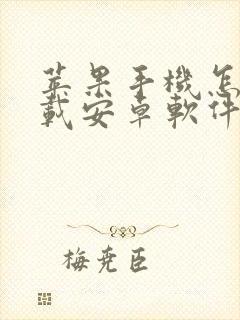 苹果手機怎
載安卓軟件
梅堯臣